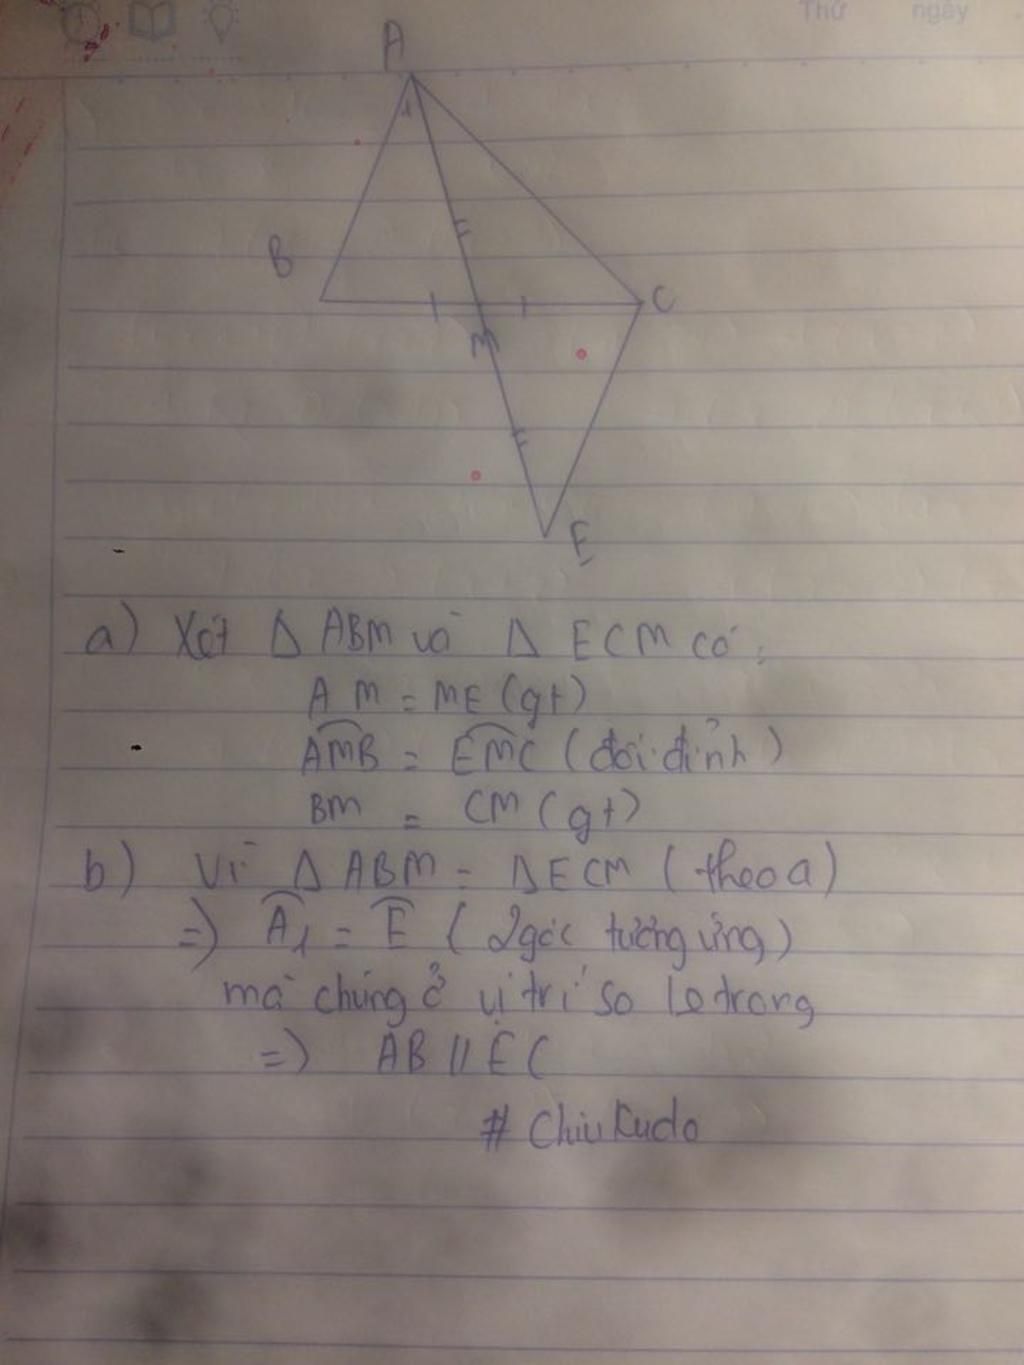 Thứ ngày
A
1
B
C
M
E
a) Xét Δ ABM và Δ ECM có:
AM = ME (gt)
AMB = EMC (đối đỉnh)
BM = CM (gt)
b) Vì Δ ABM = Δ ECM (theo a)
=) A1 = E (2 góc tương ứng)
mà chúng ở vị trí so le trong
=) AB // EC
# Chiukudo